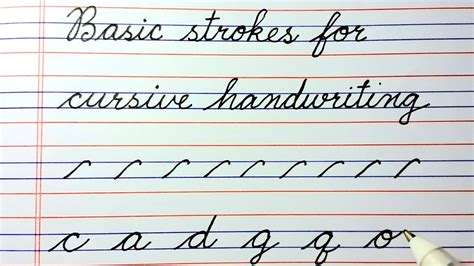 Basic strokes for
cursive handwriting
c a d g q o